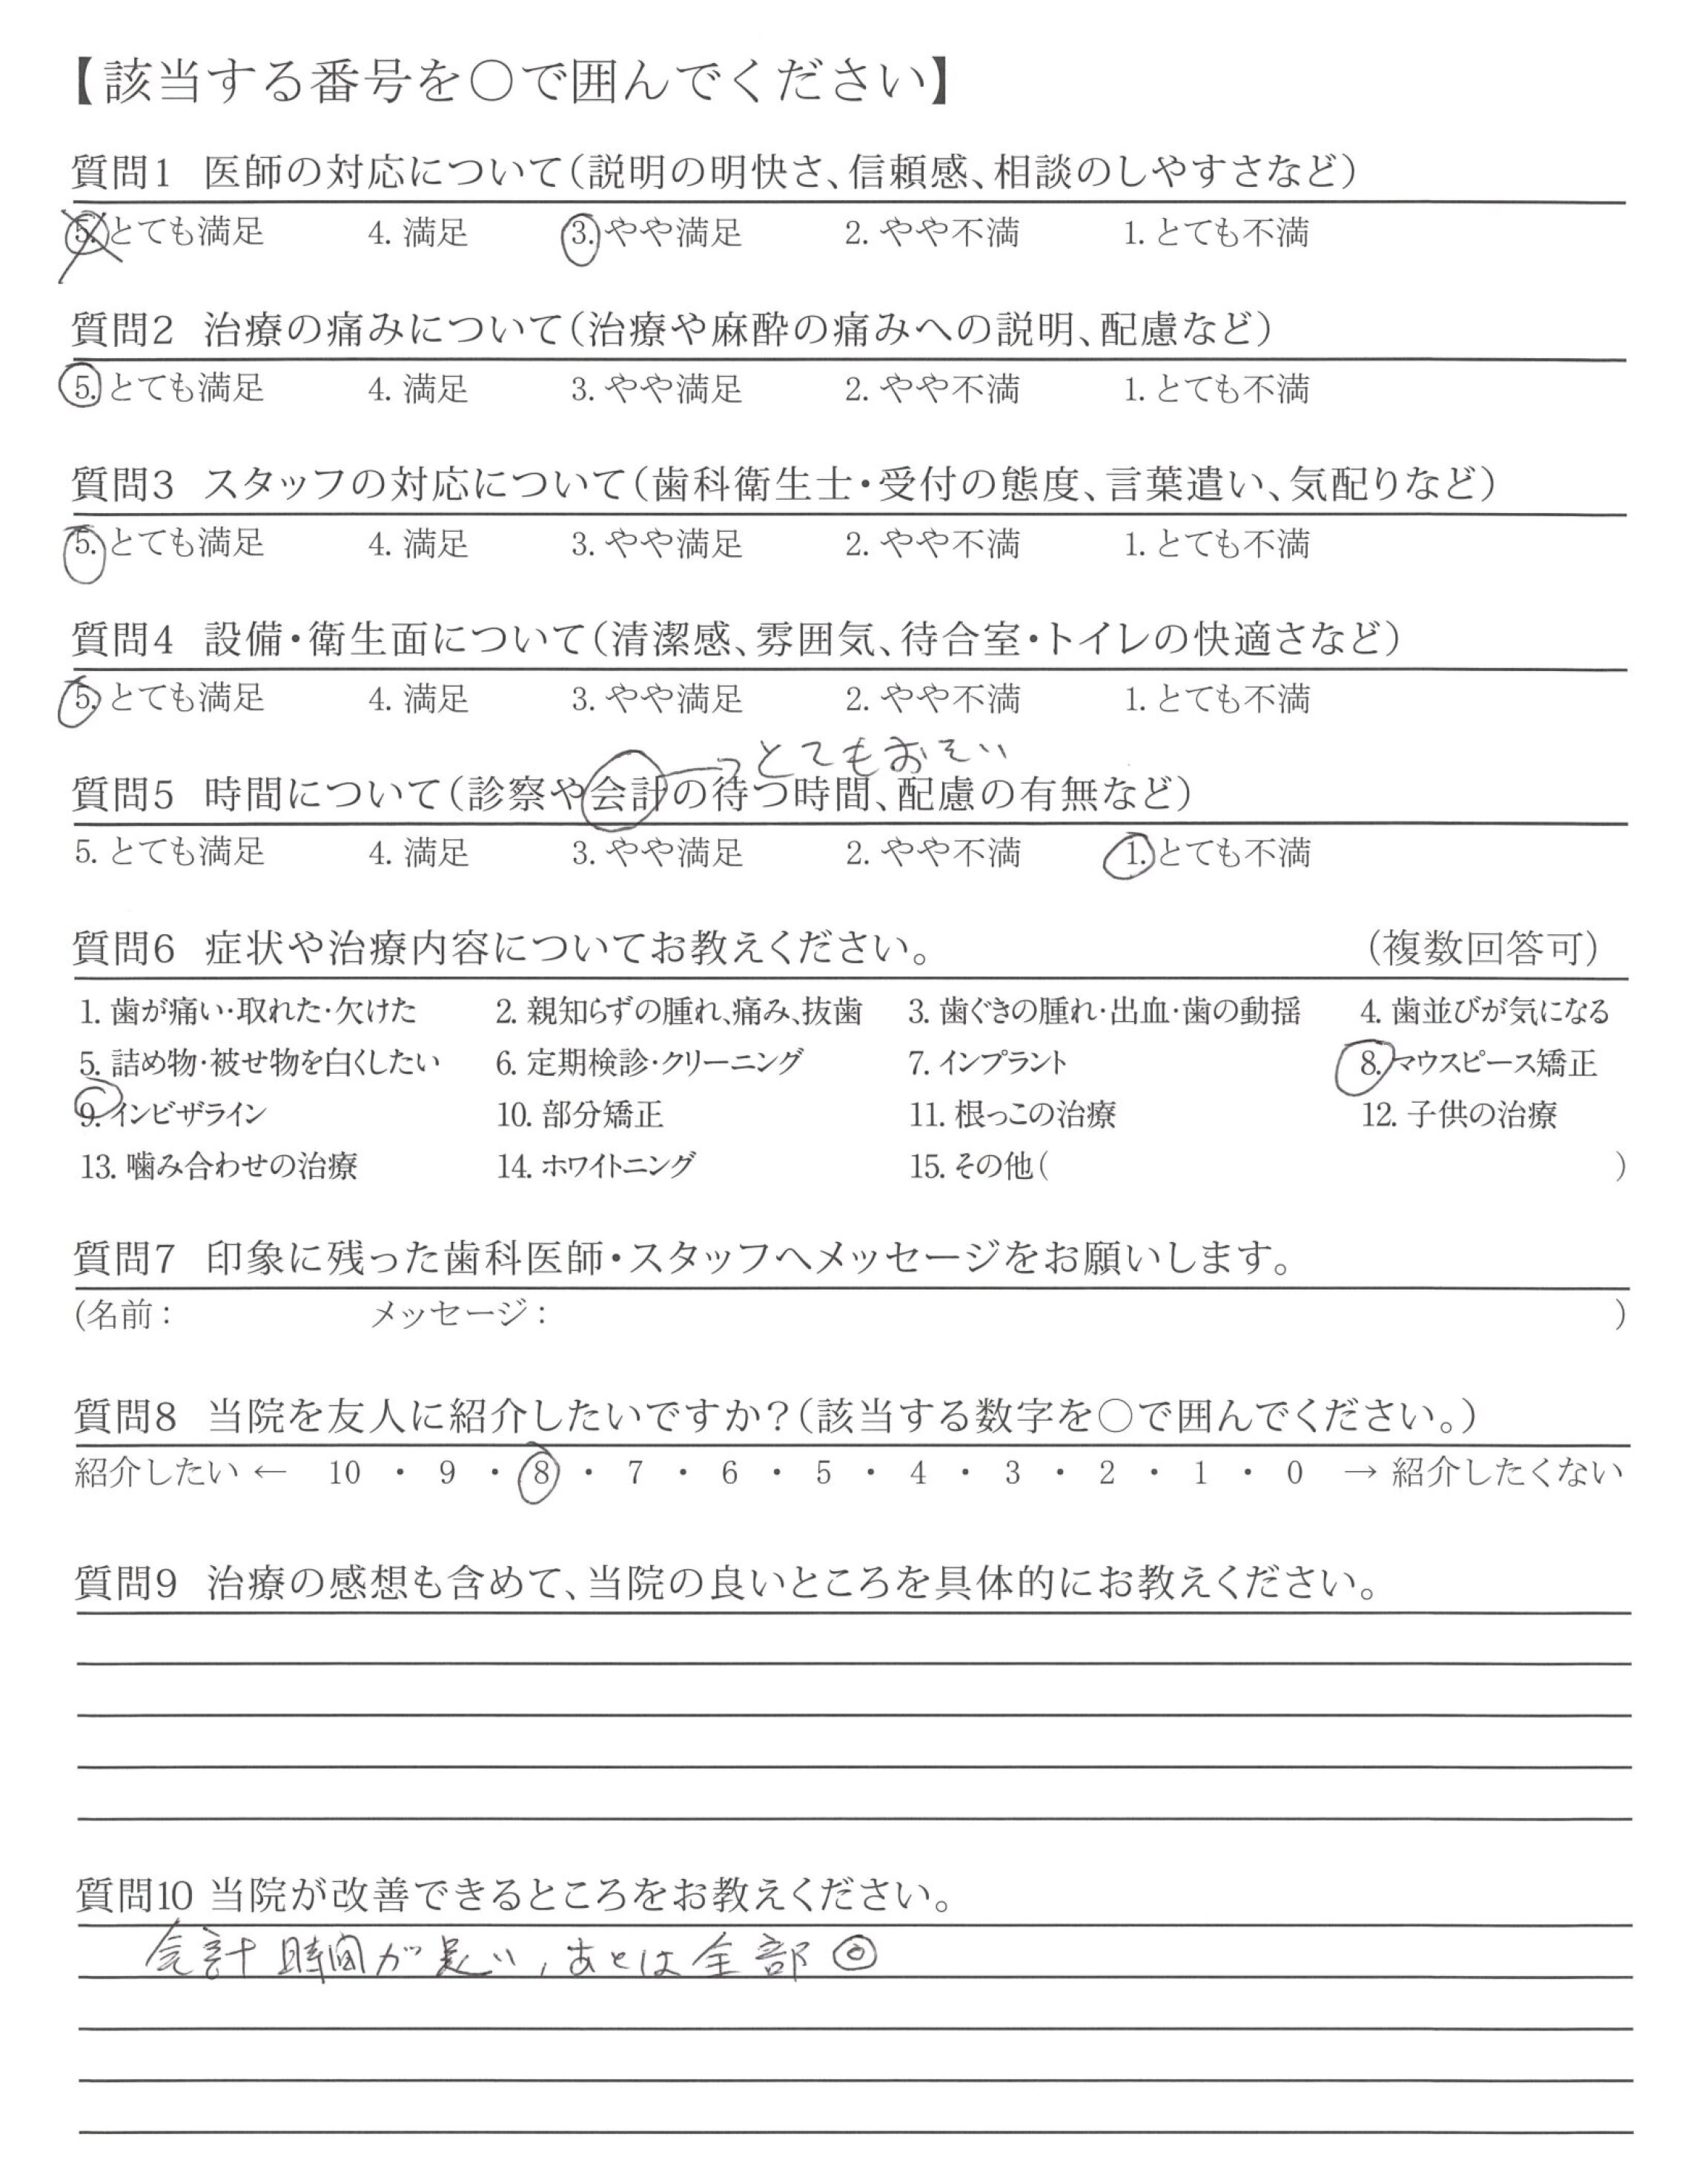 【該当する番号を○で囲んでください】
質問1 医師の対応について(説明の明快さ、信頼感、相談のしやすさなど)
5. とても満足 4. 満足 3. やや満足 2. やや不満 1. とても不満
質問2 治療の痛みについて(治療や麻酔の痛みへの説明、配慮など)
5. とても満足 4. 満足 3. やや満足 2. やや不満 1. とても不満
質問3 スタッフの対応について(歯科衛生士・受付の態度、言葉遣い、気配りなど)
5. とても満足 4. 満足 3. やや満足 2. やや不満 1. とても不満
質問4 設備・衛生面について(清潔感、雰囲気、待合室・トイレの快適さなど)
5. とても満足 4. 満足 3. やや満足 2. やや不満 1. とても不満
→とてもおそい
質問5 時間について(診察や会計の待つ時間、配慮の有無など)
5. とても満足 4. 満足 3. やや満足 2. やや不満 1. とても不満
質問6 症状や治療内容についてお教えください。 (複数回答可)
1. 歯が痛い・取れた・欠けた 2. 親知らずの腫れ、痛み、抜歯 3. 歯ぐきの腫れ・出血・歯の動揺 4. 歯並びが気になる
5. 詰め物・被せ物を白くしたい 6. 定期検診・クリーニング 7. インプラント 8. マウスピース矯正
9. インビザライン 10. 部分矯正 11. 根っこの治療 12. 子供の治療
13. 噛み合わせの治療 14. ホワイトニング 15. その他( )
質問7 印象に残った歯科医師・スタッフへメッセージをお願いします。
(名前： メッセージ： )
質問8 当院を友人に紹介したいですか？(該当する数字を○で囲んでください。)
紹介したい ← 10 ・ 9 ・ 8 ・ 7 ・ 6 ・ 5 ・ 4 ・ 3 ・ 2 ・ 1 ・ 0 → 紹介したくない
質問9 治療の感想も含めて、当院の良いところを具体的にお教えください。
質問10 当院が改善できるところをお教えください。
会計時間が い, あとは全部◎